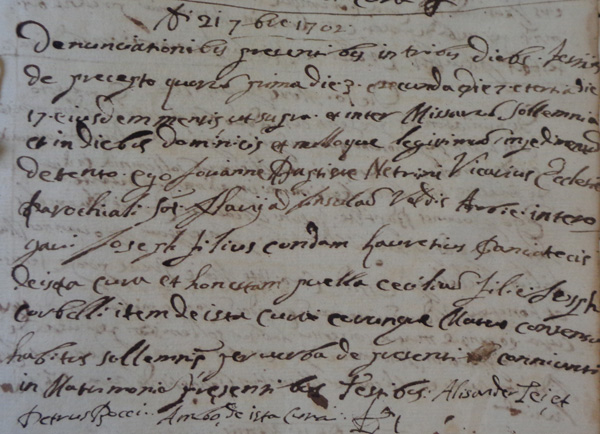 Di 21 7bre 1702
Denunciationibus presentibus in tribus diebus festivis
de precepto quorum prima die 3. secunda die 7. et tertia die
17. eiusdem mensis ut supra et inter Missarum Sollemnia
et in diebus dominicis et nulloque legitimo impedimento
detento. ego Jovanne Bastista Netrini Vicarius Ecclesie
Parochiali Sti Flavij ad Insulam Vallis Arbie. intero
gavi Joseph filius condam Laurentius Panciatecis
de ista cura et honestam puella Cecilia filie Joseph
Corbelli item de ista cura eorunque Mutuo consensu
habitus sollemnis per verba de presenti coniunti
in Matrimonio presentibus Testibus. Alisander Lei et
Petrus Bocci. Ambo de ista Cura.